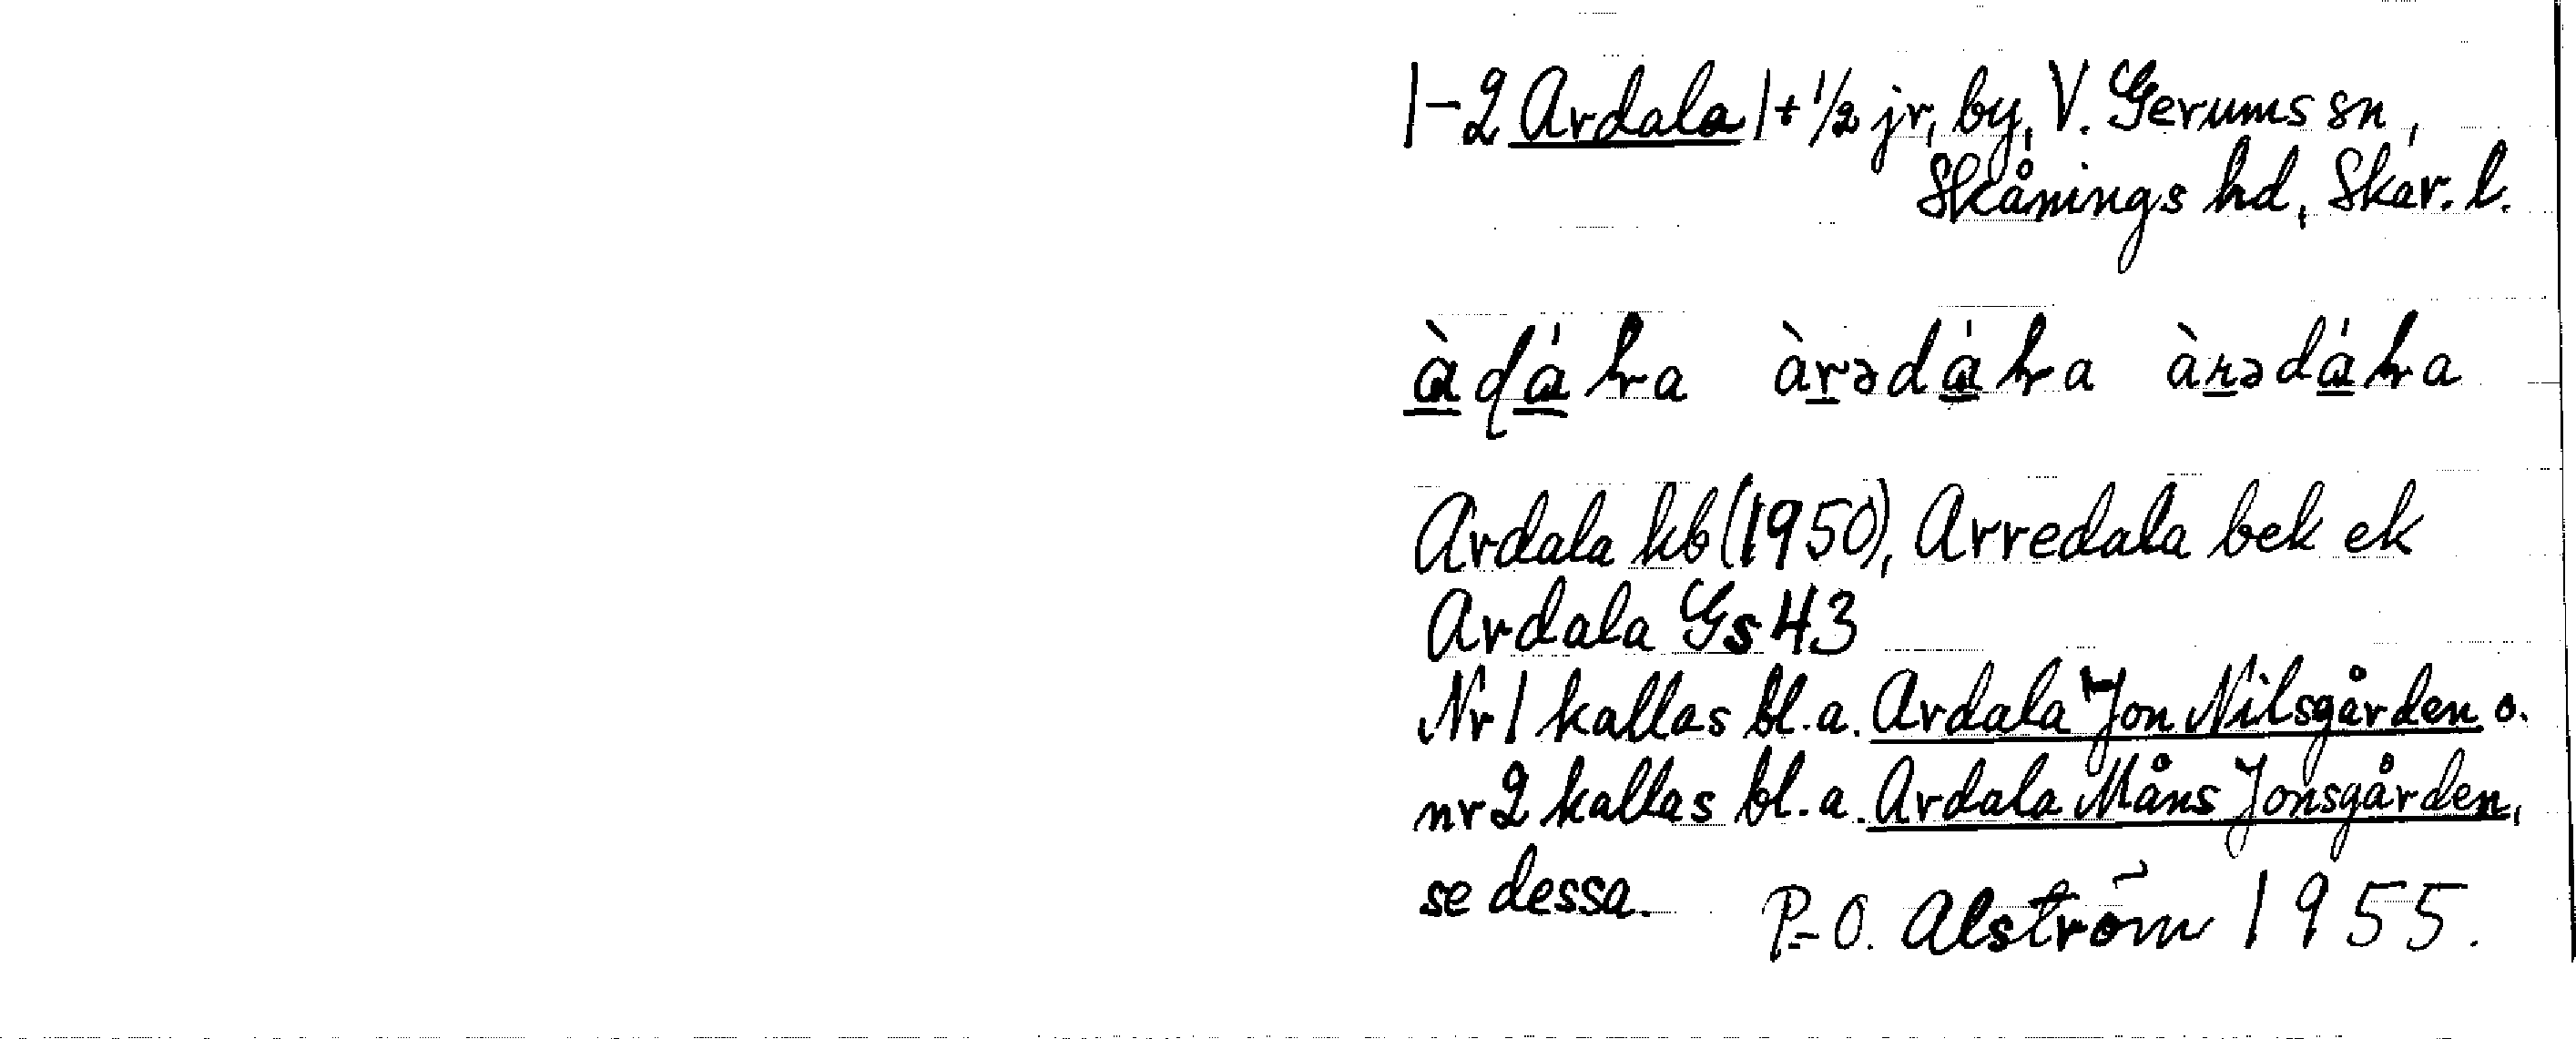 1-2 Ardala 1+1/2 jr, by, V. Gerums sn,
Skånings hd, Skar. l.
Ardala kb (1950), Arredala bek ek
Ardala Gs 43
Nr 1 kallas bl.a. Ardala Jon Nilsgården o.
nr 2 kallas bl.a. Ardala Måns Jonsgården,
se dessa. P-O. Alström 1955.